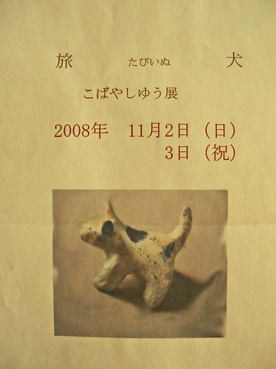 旅　たびいぬ　犬
こばやしゆう展
2008年　11月2日（日）
3日（祝）